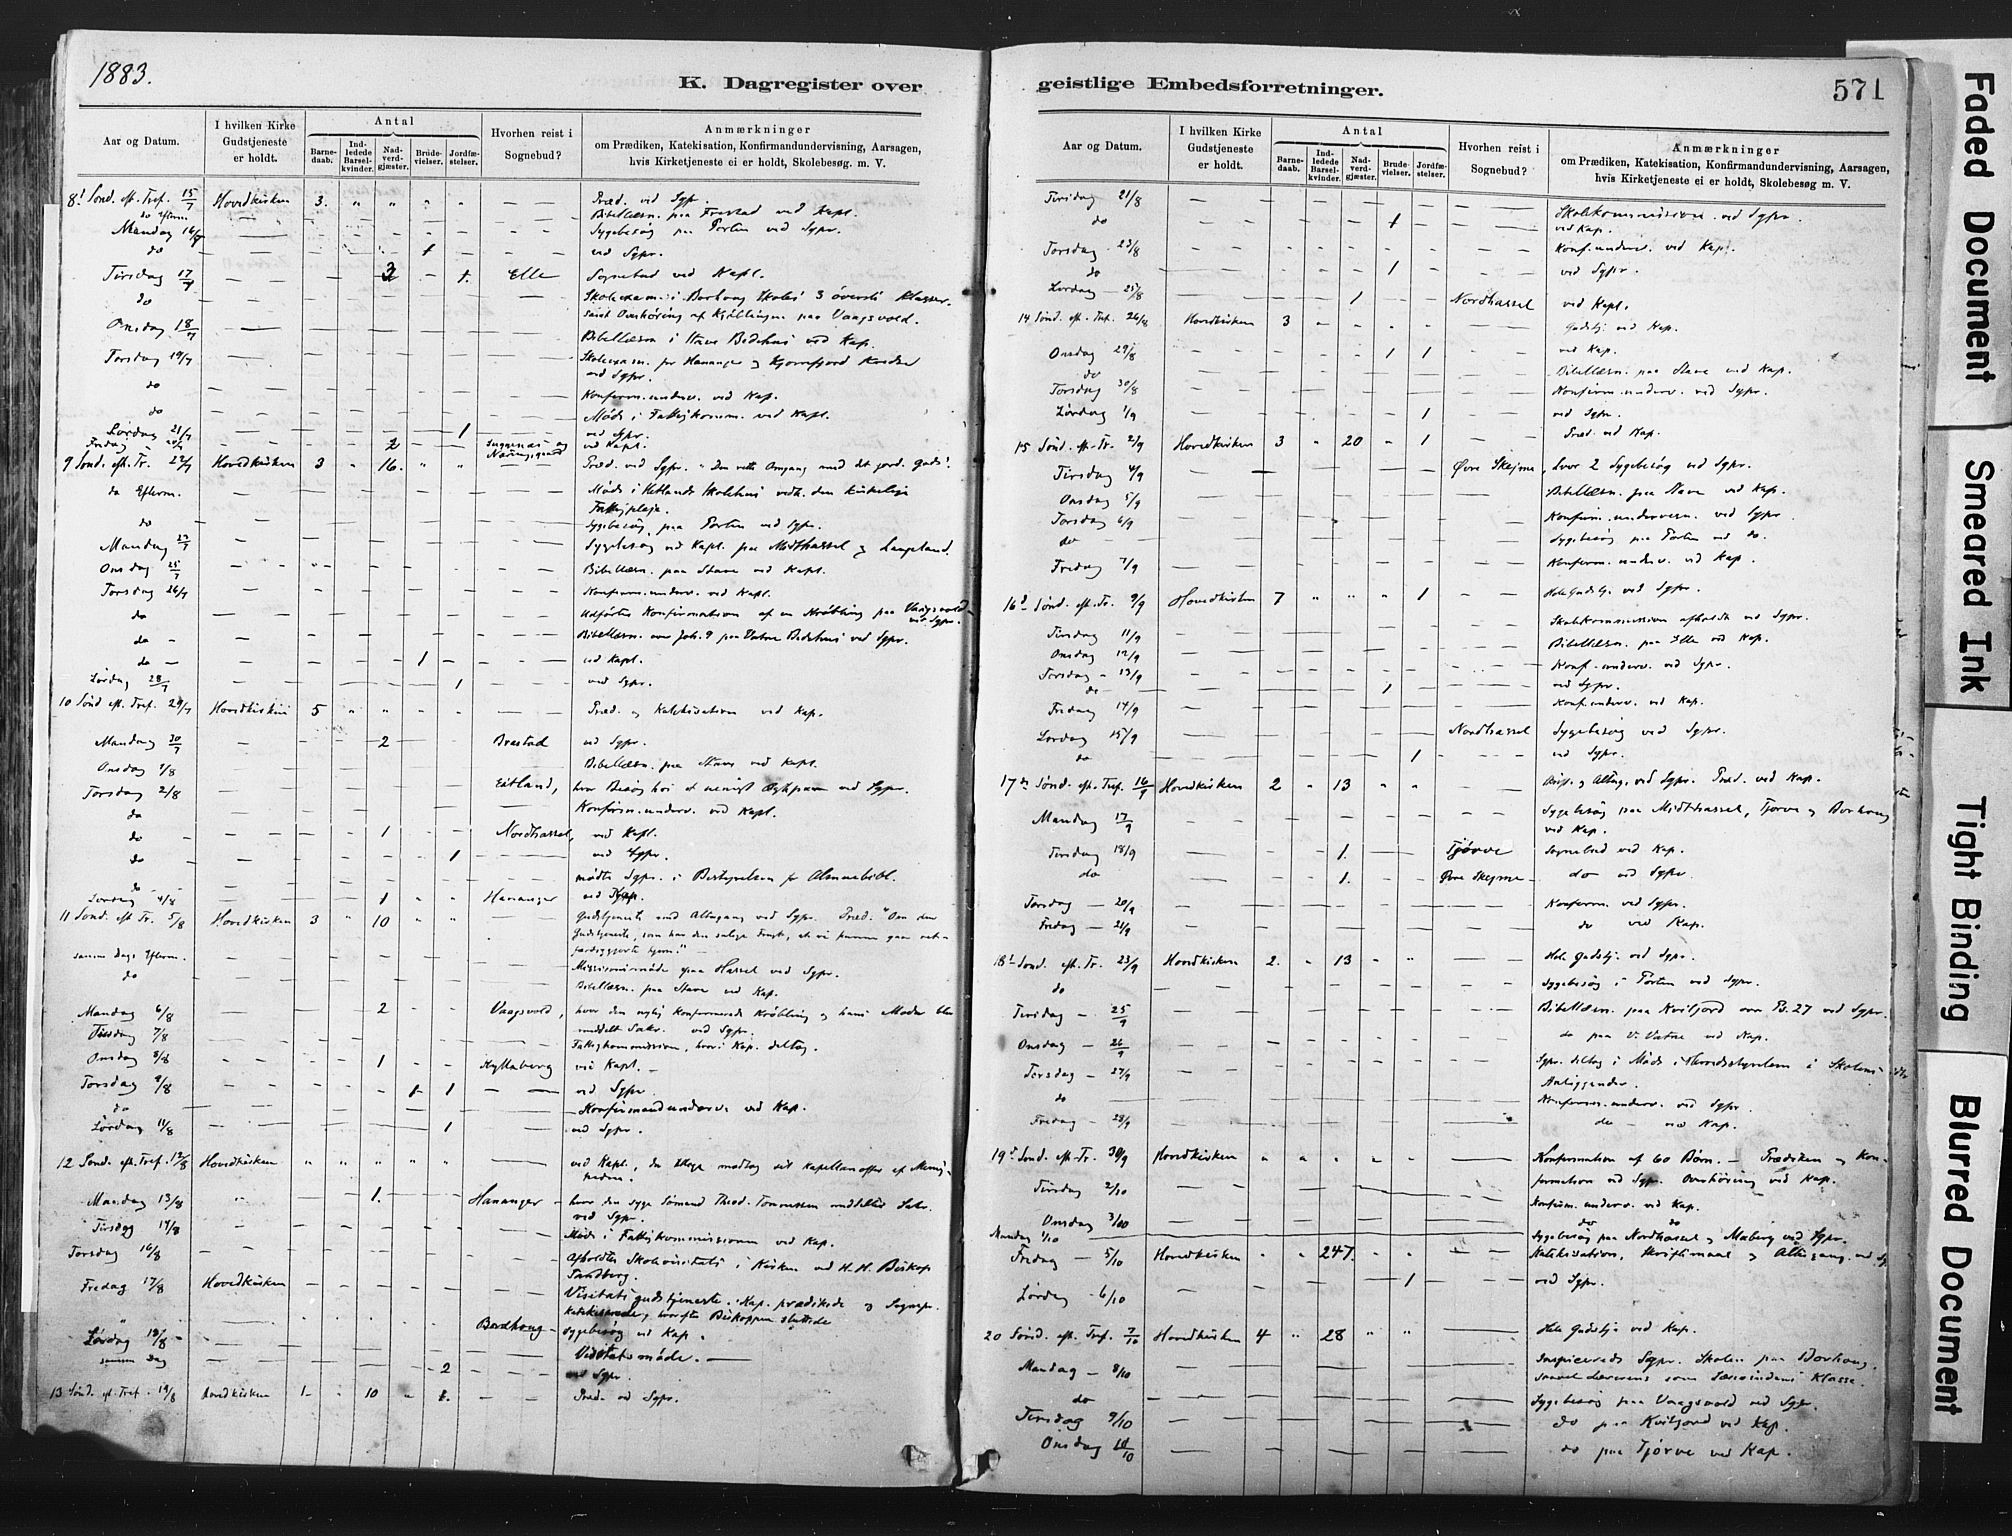 1883.
K. Dagregister over
Aar og Datum.
I hvilken Kirke Gudstjeneste er holdt.
Antal
Barne-daab.
Ind-ledede Barsel-kvinder.
Nad-verd-gjæster.
Brude-vielser.
Jordfæ-stelser.
Hvorhen reist i Sognebud?
Anmærkninger
om Prædiken, Katekisation, Konfirmandundervisning, Aarsagen,
hvis Kirketjeneste ei er holdt, Skolebesøg m. V.
8d Sønd. eft. Tref. 15/7 Hovedkirken 3. " " " " — — Præd. ved Sgpr.
do Efterm. — Bibellæsn. paa Frestad ved Kapl.
Mandag 16/7 — Sygebesøg paa Porten ved Sgpr.
do — 1 — ved Sgpr.
Tirsdag 17/7 — 3 — 1. Elle Sognebud ved Kapl.
do — Skoleexam. i Borhaug Skoles 3 øverste Klasser.
samt Overhøring af Kröblingen paa Vaagsvold.
Onsdag 18/7 — Bibellæsn i Stave Bedehus ved Kap.
Torsdag 19/7 — Skoleexam. for Hananger og Kjørrefjord Kredse
ved Sgpr.
do — Konfirm.underv. ved Kap.
do — Møde i Fattigkomm. ved Kapl.
Lørdag 21/7 — 1 — ved Sgpr.
Fredag 20/7 — 2 — og ved Kapl.
9 Sønd. eft. Tr. 22/7 Hovedkirken 3 " 16. " " — Præd. ved Sgpr. "Den rette Omgang med det jord. gods".
do Efterm. — Møde i Vetlands Skolehus vedk. den kirkelige
Fattigpleje.
do — Sygebesøg paa Porten ved Sgpr.
Mandag 23/7 — Sygebesøg ved Kapl. paa Midthassel og Langeland.
Onsdag 25/7 — Bibellæsn. paa Stave ved Kapl.
Torsdag 26/7 — Konfirm.underv. ved Kapl.
do — Udførtes Konfirmation af en Kröbling paa Vaagsvold
ved Sgpr.
do — Bibellæsn. over Joh. 9 paa Vatne Bedehus ved Sgpr.
do — 1 — ved Kapl.
Lørdag 28/7 — 1 ved Sgpr.
10 Sønd. eft. Tref. 29/7 Hovedkirken 5 " " " " Præd. og Katekisation ved Kap.
Mandag 30/7 — 2 — Brestad ved Sgpr.
Onsdag 1/8 — Bibellæsn. paa Stave ved Kapl.
Torsdag 2/8 — Eitland, hvor Besøg hos et uenigt Ægtepar ved Sgpr.
do — Konfirm.underv. ved Kapl.
do — 1 — Nordhassel, ved Kapl.
do — 1 — ved Sgpr.
do — mødte Sgpr. i Bestyrelsen for Almuebibl.
Lørdag 4/8 — 1 " " Hananger ved Kap.
11 Sønd. eft. Tr. 5/8 Hovedkirken 3 " 10 " " — Gudstjeneste med Altergang ved Sgpr. Præd. "Om den
Gudstjeneste, som har den salige Frugt, at vi kunne gaa ret-
færdiggjorte hjem."
samme dags Efterm. — Missionsmøde paa Hassel ved Sgpr.
do — Bibellæsn. paa Stave ved Kap.
Mandag 6/8 — 2 — Vaagsvold, hvor den nylig konfirmerede Kröbling og hans Moder blev
meddelt Sakr. ved Sgpr.
Tirsdag 7/8 — Fattigkommission, hvori Kap. deltog.
Onsdag 8/8 — 1 — ved Kapl.
Torsdag 9/8 — 1 1 — ved Sgpr.
do — Konfirmandunderv. ved Kap.
Lørdag 11/8 — 1 — ved Sgpr.
12 Sønd. eft. Tref. 12/8 Hovedkirken " " " " " — ved Kapl., der tillige modtog sit kapellanoffer af Menig-
heden.
Mandag 13/8 " — 1. — Hananger — hvor den syge Sömand Theod. Tommessen meddeltes Sakr.
ved Sgpr.
Tirsdag 14/8 — Møde i Fattigkommissionen ved Kap.
Torsdag 16/8 — Afholdtes Skolevisitats i Kirken ved H. H. Biskop
Tandberg.
Fredag 17/8 Hovedkirken — Visitatsgudstjeneste. Kap. prædikede og Sognepr.
katekiserede, hvorefter Biskoppen sluttede
" — Bordhaug — Sygebesøg ved Kap.
Lørdag 18/8 — Visitatsmøde.
samme Dag — 2 ved Sgpr.
13 Sønd. eft. Tref. 19/8 Hovedkirken 1 — 10 " 1. — Præd. ved Sgpr.
geistlige Embedsforretninger.
571
Aar og Datum.
I hvilken Kirke Gudstjeneste er holdt.
Antal
Barne-daab.
Ind-ledede Barsel-kvinder.
Nad-verd-gjæster.
Brude-vielser.
Jordfæ-stelser.
Hvorhen reist i Sognebud?
Anmærkninger
om Prædiken, Katekisation, Konfirmandundervisning, Aarsagen,
hvis Kirketjeneste ei er holdt, Skolebesøg m. V.
Tirsdag 21/8 — Skolekommission ved Sgpr.
do — 1 — ved Kap.
Torsdag 23/8 — Konf.underv. ved Kap.
do — 1 — ved Sgpr.
Lørdag — 25/8 — 1 — Nordhassel ved Kapl.
14 Sønd. eft. Tref. 26/8 Hovedkirken 3 — Gudstj. ved Kap.
Onsdag 29/8 — 1 1 — ved Kap.
do — Bibellæsn. paa Stave ved Kap.
Torsdag 30/8 — Konfirm.underv. ved Sgpr.
Lørdag 1/9 — 1 ved Sgpr.
15 Sønd. eft. Tr. 2/9 Hovedkirken 3 " 20 " 1 — Præd. ved Kap.
Tirsdag 4/9 — Øvre Skejme, hvor 2 Sygebesøg ved Sgpr.
Onsdag 5/9 — Bibellæsn. paa Stave ved Kap.
Torsdag 6/9 — Konfirm.undervisn. ved Sgpr.
do — Sygebesøg paa Porten ved do.
Fredag 7/9 — Konfirm. underv. ved Kap.
16d Sønd. eft. Tr. 9/9 Hovedkirken 7 " " " 1 — Hele Gudstj. ved Sgpr.
Tirsdag 11/9 — Skolekommission afholdt ved Sgpr.
Onsdag 12/9 — Bibellæsn. paa Elle ved Kap.
Torsdag — 13/9 — Konf. underv. ved Sgpr.
do — 1 — ved Sgpr.
Fredag 14/9 — Konf.underv. ved Kap.
Lørdag 15/9 — Nordhassel Sygebesøg ved Sgpr.
do — 1 — ved Sgpr.
17de Sønd. eft. Tref. 16/9 Hovedkirken 2 " 13 " " — og Alterg. ved Sgpr. Præd. ved Kap.
Mandag 17/9 — Sygebesøg paa Midthassel, Tjørve og Borhaug
ved Kap.
Tirsdag 18/9 — 1. — Tjørve Sognebud ved Kap.
do — 1. — Øvre Skejme — do ved Sgpr.
Torsdag — 20/9 — Konfirm. ved Sgpr.
Fredag — 21/9 — do ved Kap.
18d Sønd. eft. Tr. 23/9 Hovedkirken 2. — 13 " " — Hele Gudstj. ved Sgpr.
do — Sygebesøg i Porten ved Sgpr.
Tirsdag — 25/9 — Bibellæsn. paa Kviljord over Ps. 27 ved Sgpr.
Onsdag — 26/9 — do paa V. Vatne ved Kap.
Torsdag — 27/9 — Sgpr. deltog i Møde i Herredsstyrelsen i Skolens
Anliggender.
do — Konfirm.underv. ved Sgpr.
Fredag — 28/9 — do — ved Kap.
19d Sønd. eft. Tr. 30/9 Hovedkirken " " " " " — Konfirmation af 60 Børn. — Prædiken og Kon-
firmation ved Sgpr. Overhöring ved Kap.
Tirsdag 2/10 — Konfirm. underv. ved Kap.
Onsdag 3/10 — do do
Mandag 1/10 — Sygebesøg paa Nordhassel og Maberg ved Sgpr.
Fredag — 5/10 Hovedkirken " " 247. " " — Katekisation, Skriftemaal og Altergang ved Sg.
Lørdag — 6/10 — 1 — ved Sgpr.
20 Sønd. eft. Tref. 7/10 Hovedkirken 4 " 28 " " — Hele Gudstj. ved Kap.
Mandag — 8/10 — Inspicerede Sgpr. Skolen paa Borhaug,
saavel Lærerens som Lærerindens Klasse.
do — Sygebesøg paa Vaagsvold ved Sgpr.
Tirsdag 9/10 — do paa Kviljord ved Kap.
Onsdag 10/10 — do paa Tjørve ved Kap.
Faded Document
Smeared Ink
Tight Binding
Blurred Document